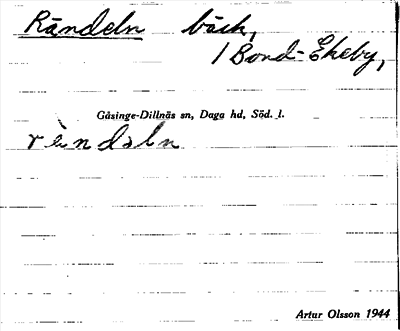 Rändeln bäck,
/ Bond-Ekeby,
Gåsinge-Dillnäs sn, Daga hd, Söd. l.
rä̀ndəln
Artur Olsson 1944